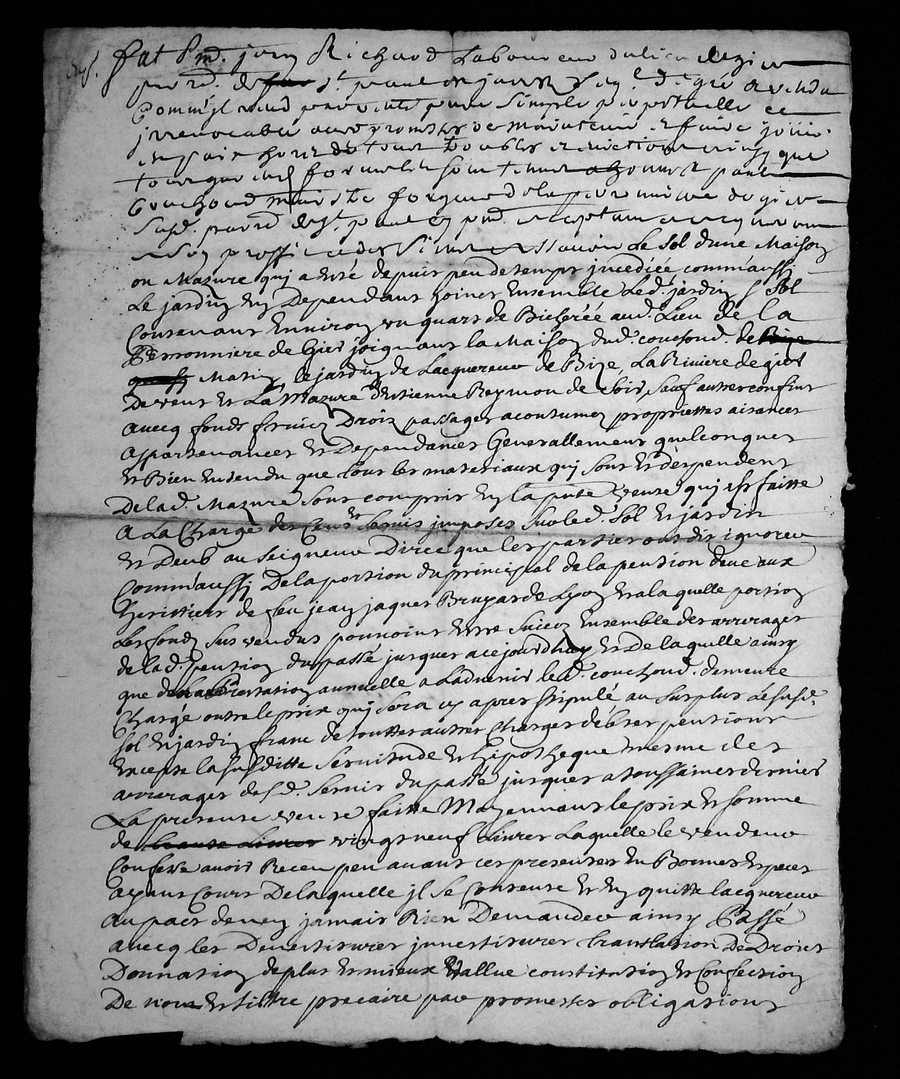 fut p^nt. jean Richard Laboureur du lieu de gier
parr^e. de st. paul en jarrest Leq^l. de gré a vendu
Comm'jl vend par vente pure simple perpetuelle et
jrrevocable avec promesse de maintenir et faire jouir
en paix hors de tous troubles et evictions ainsy que
formelle soutenue a honneste paul
Couchoud maistre forgeur de la perronniere de gier
Susd. parr^e de st. paul cy p^nt. acceptant et acquereur
a son proffit et des siens a scavoir Le Sol d'une Maison
ou Mazure quj a esté depuis peu de temps jncediée comm'aussy
Le jardin En Dependant joincts Ensemble Led. jardin & Sol
Contenant Environ un quart de Bicherée aud. Lieu de la
Perronniere de Gier joignant la Maison dud. couchoud. de Bize
Matin, le jardin de Lacquereur de Bize, La Riviere de gier
De vent Et La Mazure d'Estienne Reymon de Soir, Sauf autres confins
Avecq fonds fruicts Droits passages acoutumez proprietes aisances
Appartenances Et Dependances Generallement quelconques
Et Bien Entendu que tous les materiaux quj sont Et despendent
De lad. Mazure sont compris En la p^nte vente quj est faitte
A La Charge des Cens Et Servis jmposés Sur led. Sol Et jardin
Et Deub au Seigneur Direc que les parties ont dit ignorer
Comm'aussy De la portion du principal de la pension deue aux
heritiers de feu jean jaques Bruyas de Lyon Et a laquelle portion
Les fonds sus vendus pourroient Estre Sujets Ensemble des arrerages
de lad. pension du passé jusques a cejourdhuy Et De laquelle ainsy
que de la Prestation annuelle a Ladvenir led. couchoud. demeure
Chargé outre le prix quj sera cy apres stipulé au surplus Lesusd.
sol Et jardin franc de touttes autres charges debtes pensions
Excepté la susditte Servitude Et hipotheque mesme des
arrerages desd. servis du passé jusques a toussaints dernier
La presente vente faitte Moyennant le prix Et somme
de trante Livres vingt neuf Livres Laquelle le vendeur
Confesse avoir Receu peu avant ces presentes En Bonnes Especes
ayant Cours De laquelle jl se Contente Et En quitte lacquereur
Au pact de n'en jamais Rien Demander ainsy Passé
avecq les Devestitures jnvestitures translation De Droits
Donnation de plus Et mieux vallue constitution Et Confection
De nom Et tiltre precaire par promesses obligations